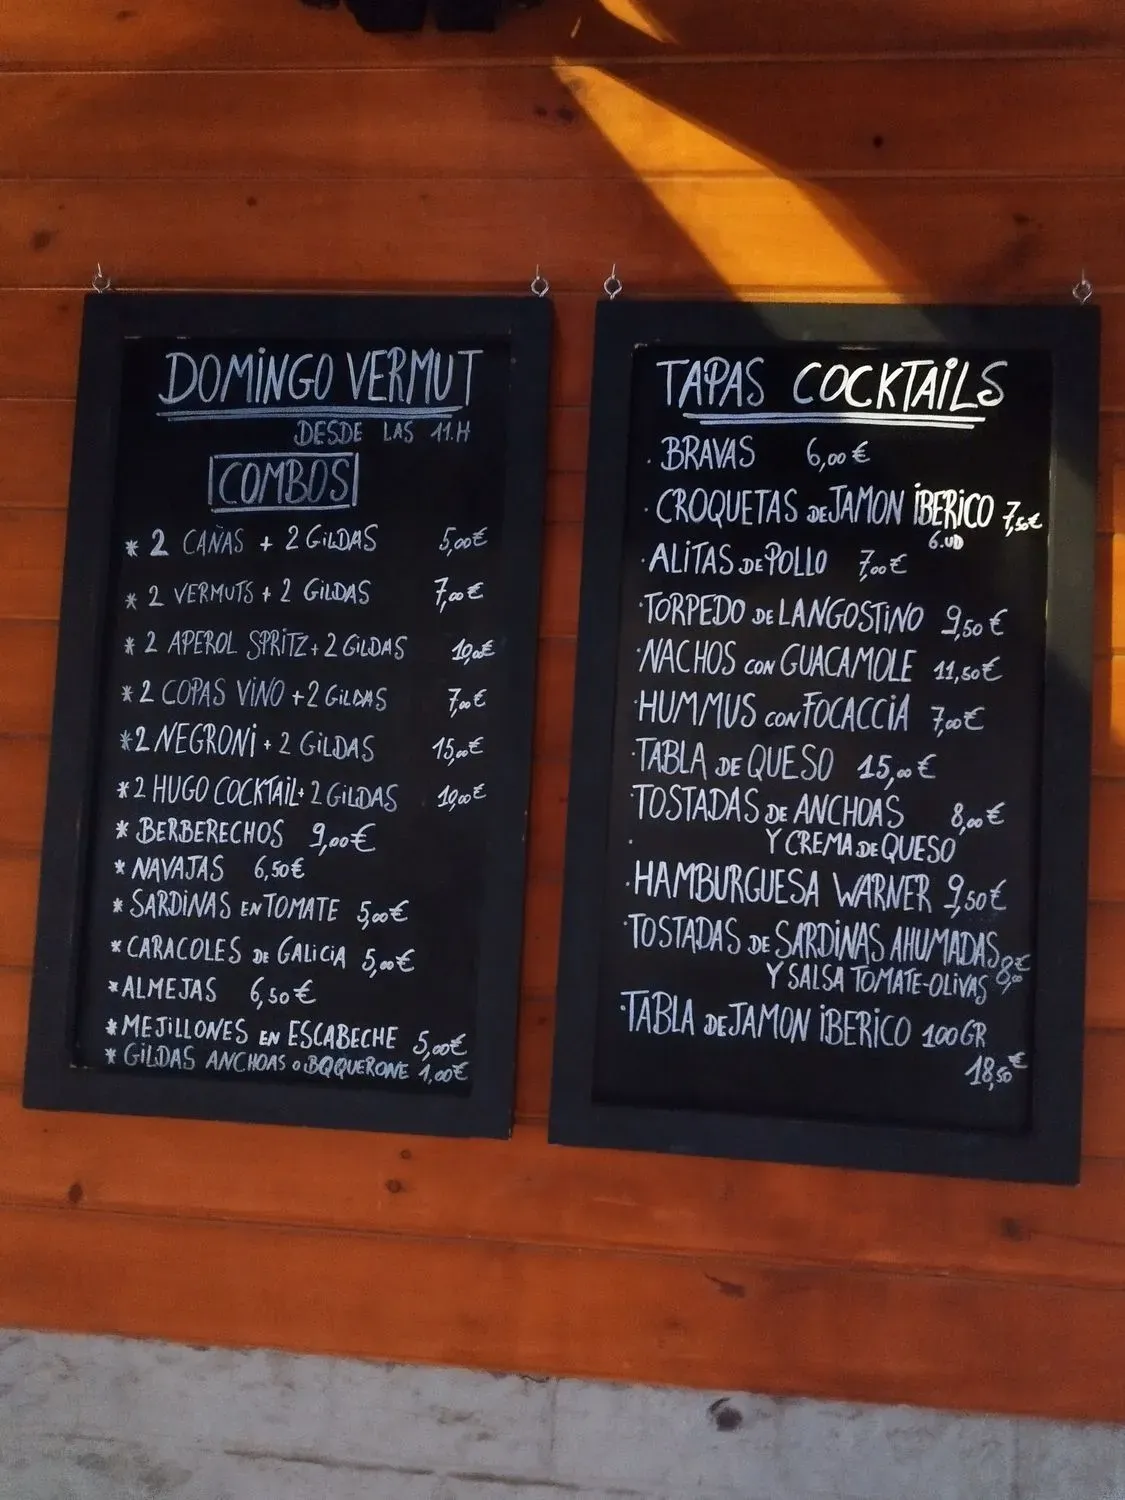 DOMINGO VERMUT
DESDE LAS 11.H
COMBOS
* 2 CAÑAS + 2 GILDAS 5,00€
* 2 VERMUTS + 2 GILDAS 7,00€
* 2 APEROL SPRITZ + 2 GILDAS 10,00€
* 2 COPAS VINO + 2 GILDAS 7,00€
* 2 NEGRONI + 2 GILDAS 15,00€
* 2 HUGO COCKTAIL + 2 GILDAS 10,00€
* BERBERECHOS 9,00€
* NAVAJAS 6,50€
* SARDINAS EN TOMATE 5,00€
* CARACOLES DE GALICIA 5,00€
* ALMEJAS 6,50€
* MEJILLONES EN ESCABECHE 5,00€
* GILDAS ANCHOAS O BOQUERONE 1,00€
TAPAS COCKTAILS
· BRAVAS 6,00€
· CROQUETAS DE JAMON IBERICO 7,50€
6.UD
· ALITAS DE POLLO 7,00€
· TORPEDO DE LANGOSTINO 9,50€
· NACHOS CON GUACAMOLE 11,50€
· HUMMUS CON FOCACCIA 7,00€
· TABLA DE QUESO 15,00€
· TOSTADAS DE ANCHOAS 8,00€
Y CREMA DE QUESO
· HAMBURGUESA WARNER 9,50€
· TOSTADAS DE SARDINAS AHUMADAS
Y SALSA TOMATE-OLIVAS 8,00€
· TABLA DE JAMON IBERICO 100GR
18,50€